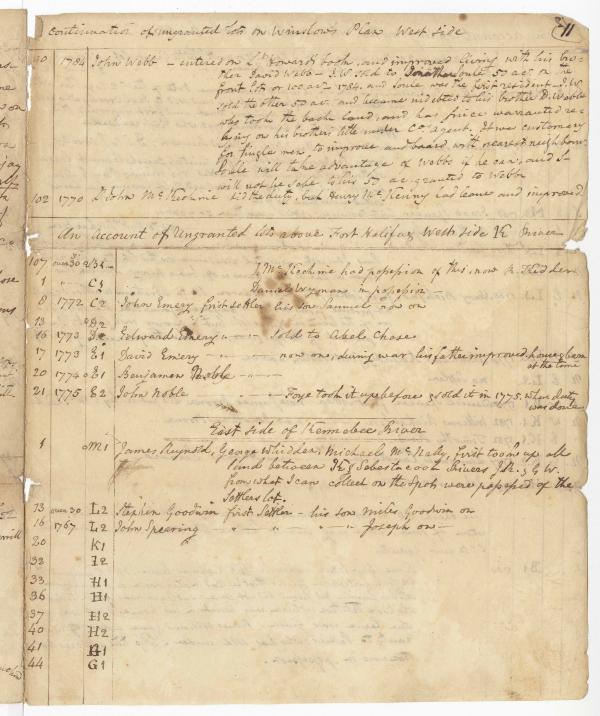 11
continuation of ungranted lots on Winslows Plan West side
90 1784 John Webb - entered on Lt Howards book, and improved Giving with his bro-
ther David Webb - J.W. sold to Jonathan Soule 50 ac. on the
front lots or 100 ac - 1784. and Soule was the first resident - J.W.
sold the other 50 ac. and became indebted to his brother D. Webb
who took the back land, and has since warranted re-
lying on his brothers title under Co. agent. It was customary
for single men to improve and board with nearest neighbour
Soule will take advantage of Webbs if he can, and
will not be safe to his 50 ac. granted to Webb
102 1770 L John McKechnie did the duty, but Henry McKenny had leave and improved
An account of Ungranted lots above Fort Halifax West side K River
107 over 30 J. McKechnie had posession of this, now R. Kidder
1 " C1 Daniel Wymans in posession -
8 1772 C2 John Emery first settler his son Samuel now on
13 D2
16 1773 Edward Emery " - " - sold to Abel Chase
17 1773 E1 David Emery " - - now one, during war his father improved, house, barn
at the time
20 1774 E1 Benjamen Noble -
21 1775 E2 John Noble " - - Foye took it up before & sold it in 1775. when duty
was done
East side of Kennebec River
1 M1 James Huynold, George Whidden, Michael McNaly, first took up all
land between K & Sebesticook Rivers J.R. & G W.
from what I can collect on the spot, were posessed of the
settlers lot.
13 over 30 L2 Stephen Goodwin first Settler - his son Miles Goodwin on
16 1767 L2 John Speering - " - " - " - Joseph on -
20 K1
32 I2
33 H1
36 H1
37 H2
40 H2
41 G1
44 G1